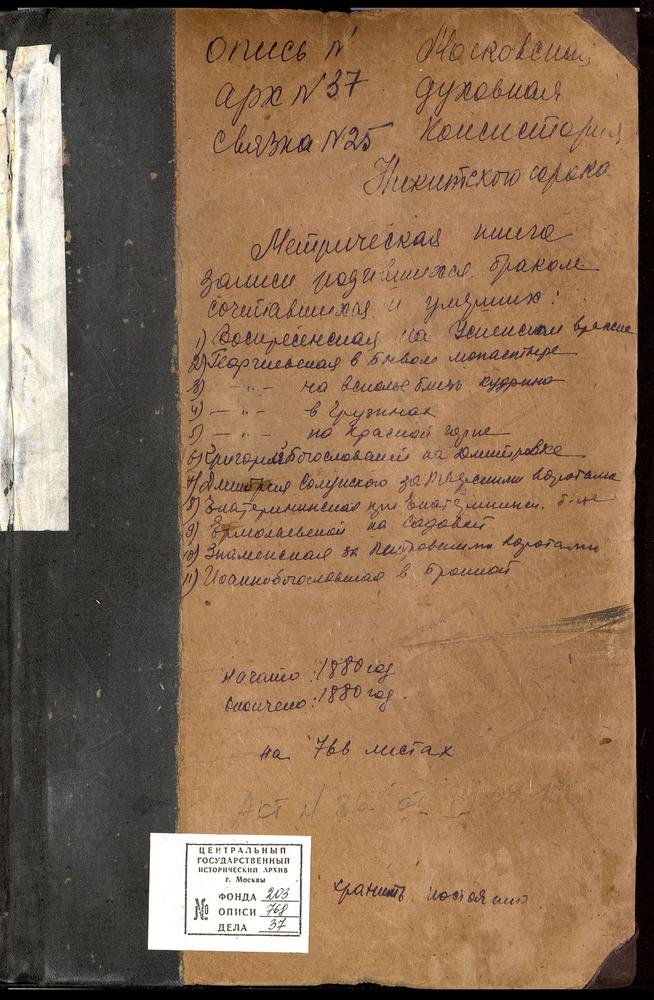 Опись № Московская
арх № 37 духовная
связка № 25 Консистория
Никитского сорока
Метрическая книга
записи родившихся браком
сочитавшихся и умерших:
1) Воскресенская на Успенском вражке
2) Георгиевская в бывом монастыре
3) — " — на всполье близь кудрина
4) — " — в Грузинах
5) — " — на Красной горке
6) Григория Богословский на Дмитровке
7) Дмитрия Солунского за Тверскими воротами
8) Екатерининская при Екатерининск. б-це
9) Ермолаевской на Садовой
10) Знаменская за Петровскими воротами
11) Иоаннобогословская в Бронной
начато: 1880 год
окончено: 1880 год.
на 766 листах
Акт № 86 от
хранить постоянно
ЦЕНТРАЛЬНЫЙ
ГОСУДАРСТВЕННЫЙ
ИСТОРИЧЕСКИЙ АРХИВ
г. Москвы
№ ФОНДА 203
ОПИСИ 768
ДЕЛА 37